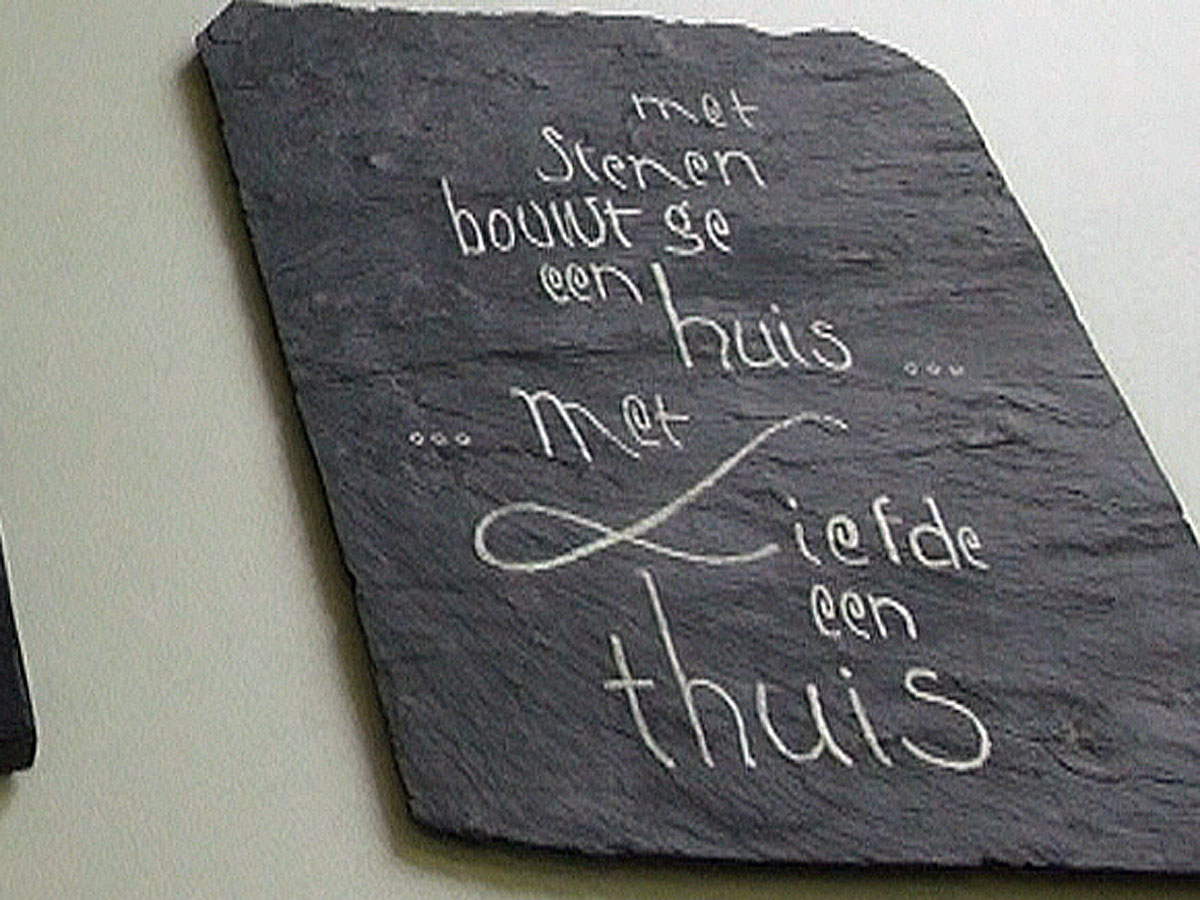 met
Stenen
bouwt ge
een huis ...
... Met
Liefde
een
thuis